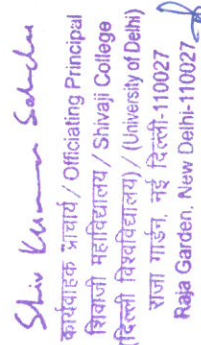 Shiv Kumar Sahdev
कार्यवाहक प्राचार्य / Officiating Principal
शिवाजी महाविद्यालय / Shivaji College
(दिल्ली विश्वविद्यालय) / (University of Delhi)
राजा गार्डन, नई दिल्ली-110027
Raja Garden, New Delhi-110027